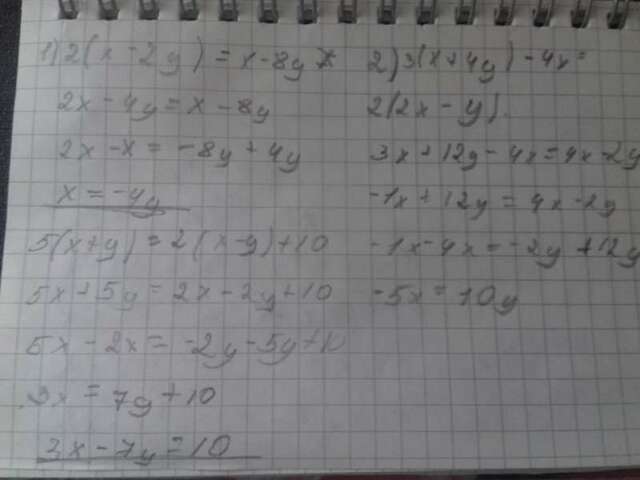 1) 2(x-2y) = x-8y
2x-4y=x-8y
2x-x = -8y+4y
x = -4y
5(x+y) = 2(x-y)+10
5x+5y=2x-2y+10
5x-2x=-2y-5y+10
3x = 7y+10
3x-7y=10
2) 3(x+4y)-4x=
2(2x-y).
3x+12y-4x=4x-2y
-1x+12y=4x-2y
-1x-4x=-2y+12y
-5x=10y